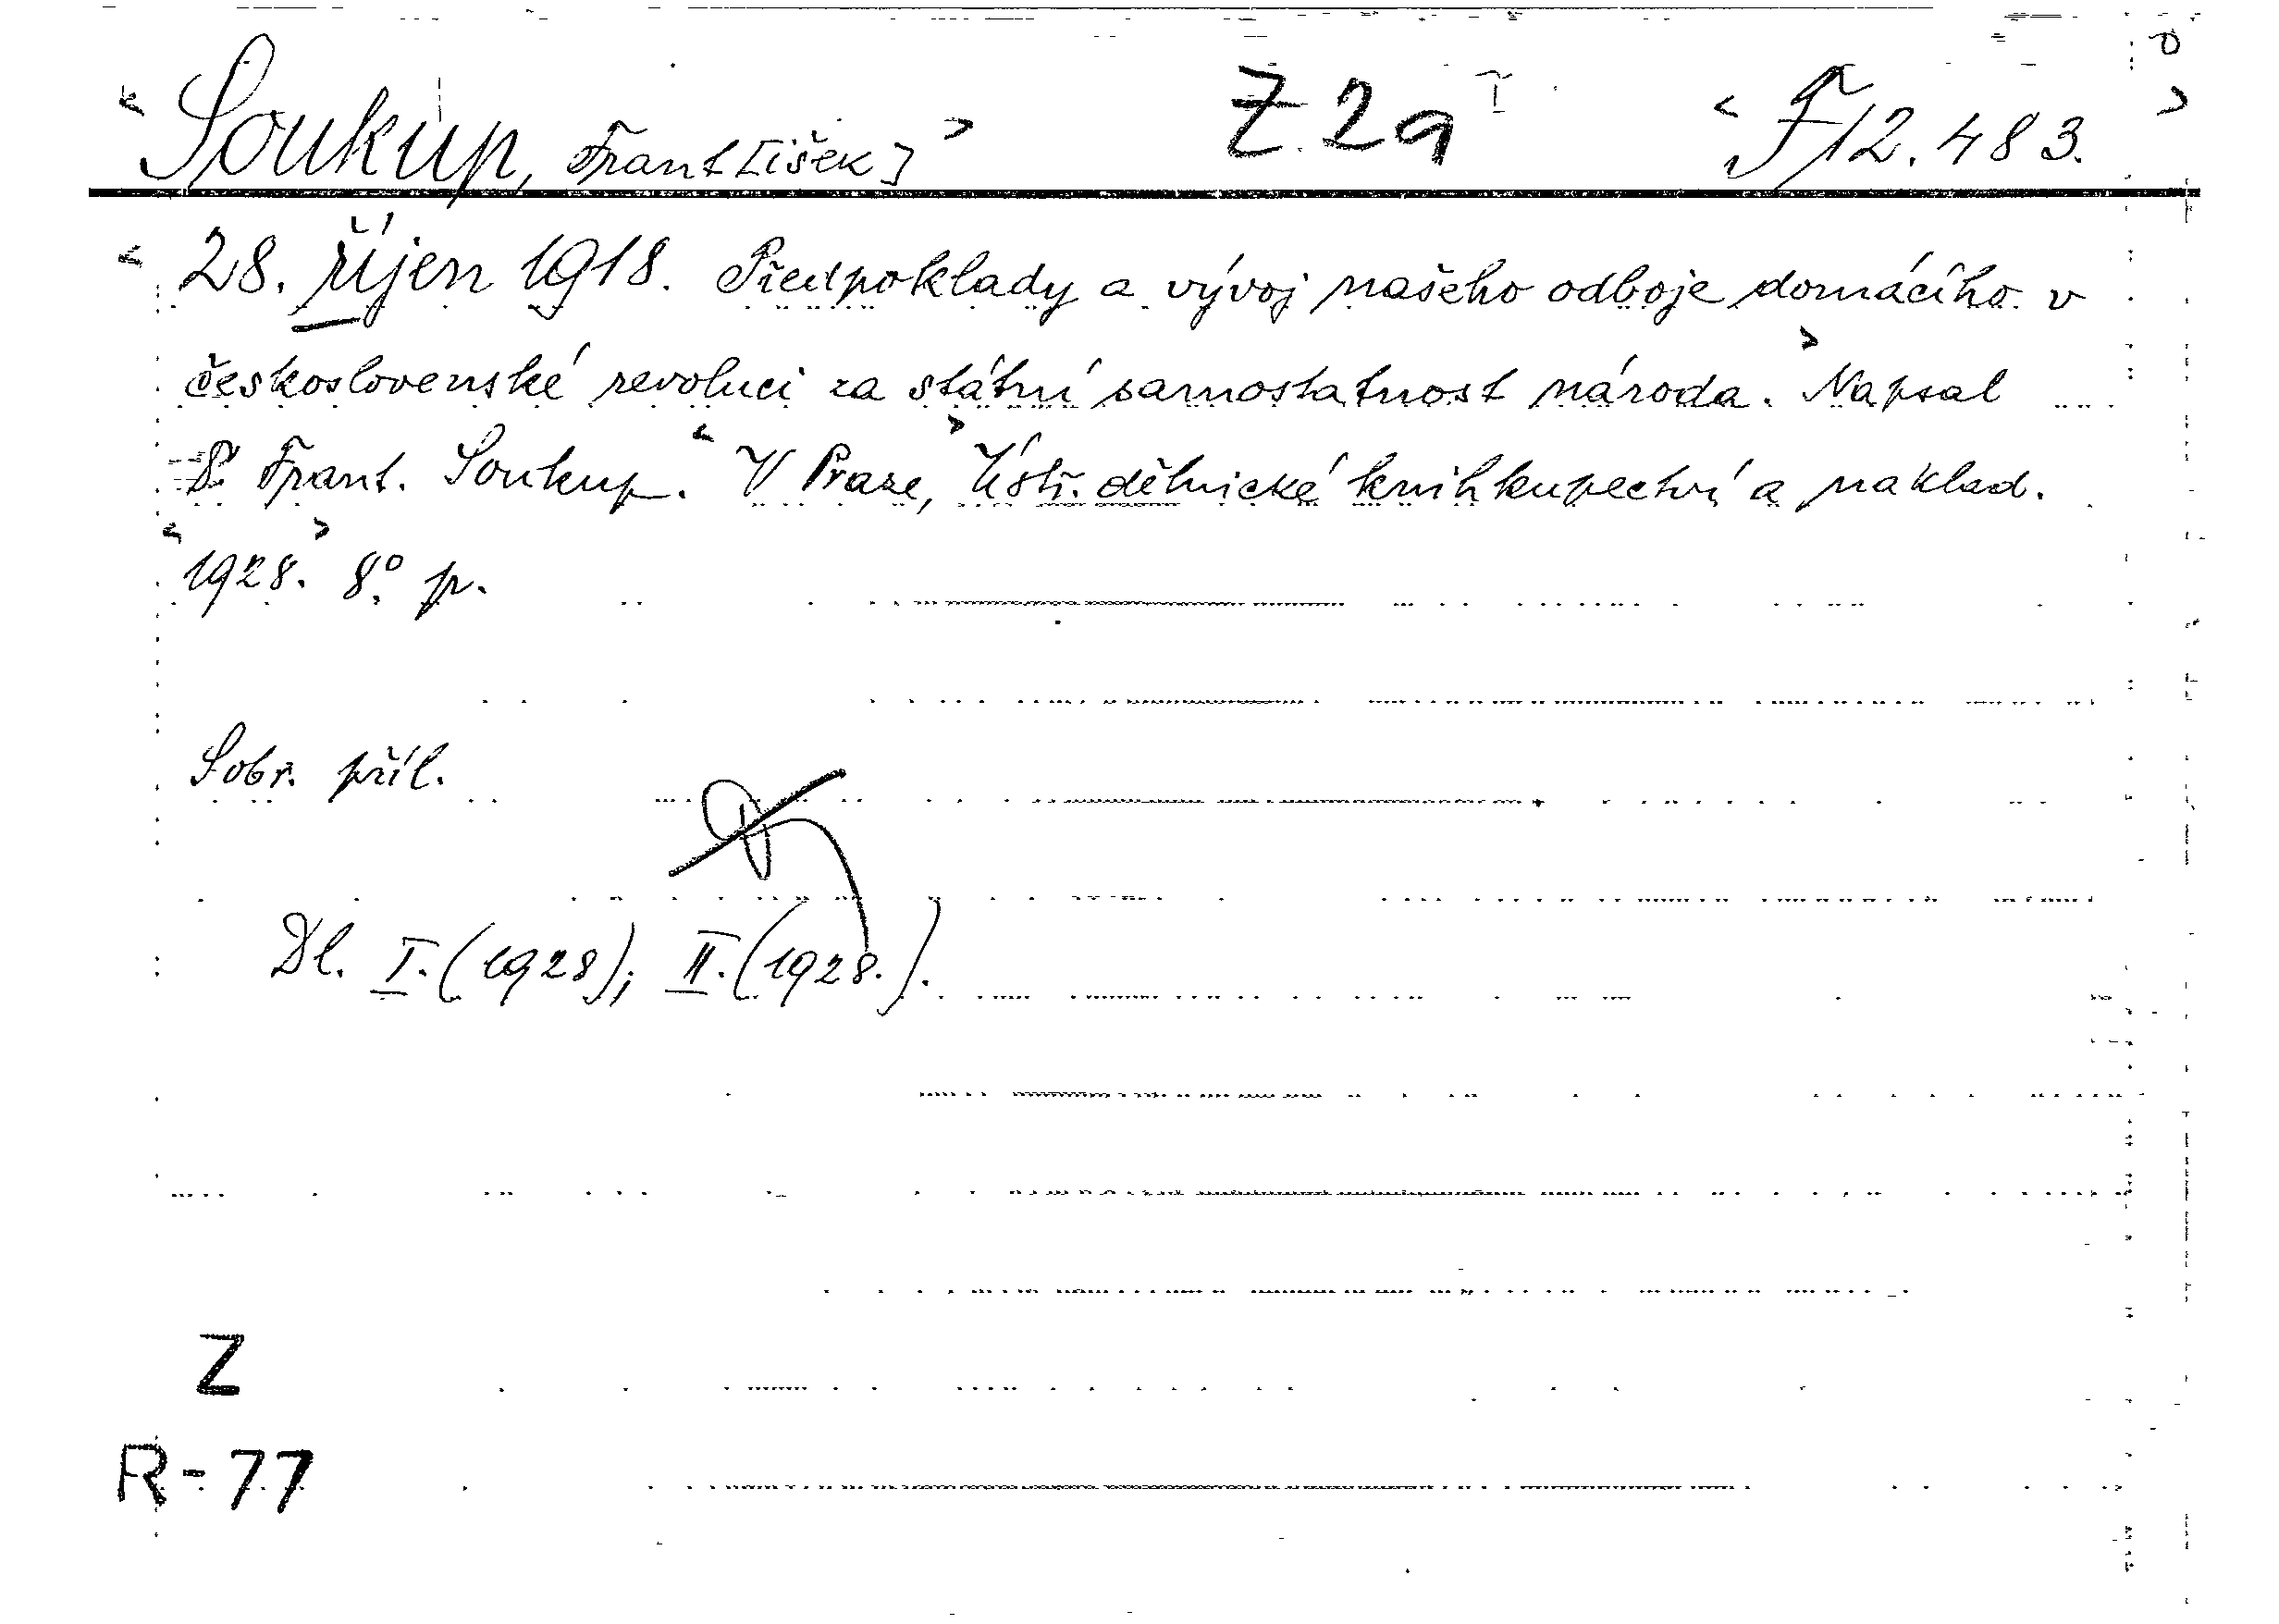 Soukup, Frant[išek] Z 2a F 12.483.
28. říjen 1918. Předpoklady a vývoj našeho odboje domácího v
československé revoluci za státní samostatnost národa. Napsal
Dr Frant. Soukup. V Praze, Ústř. dělnické knihkupectví a naklad.
1928. 8° p.
Sobr. příl.
Dl. I. (1928); II. (1928.).
Z
R-77